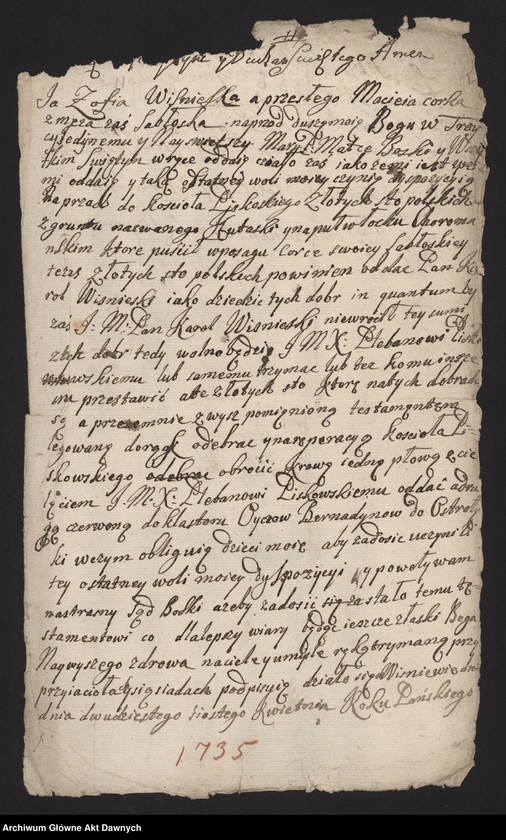 y Duchas Swiętego Amen
Ja Zofia Wiśnieska a przesłego Macieia corka
z męza zaś Sabłocka naprzod duszę moię Bogu w Troy
cy jedynemu y Nayswiętszy Maryi Matce Boski y Wszy
tkim Swiętym w ręce oddaię ciało zaś iako ziemi iest
mi oddaię y taką ostatney woli moiey czynię dyspozycyią
Naprzod do kosciola Piskoskiego Złotych sto polskich
z gruntu nazwanego Hutaski y na puł włocku Choroma
nskim ktore puścił w posagu Corce swoiey Sabłoskiey
teraz złotych sto polskich powinien oddac Pan Ka
rol Wisnieski iako dziedzic tych dobr in quantum by
zas J: M: Pan Karol Wisnieski niewrocił tey sumy
z tych dobr tedy wolno będzie J M X: Plebanowi Pisko
wskiemu lub samemu trzymac lub tez komu insze
mu przestawić a te złotych sto ktore na tych dobrach
są a przezemnie zwysz pomięnioną testamentęm
legowane dorąg odebrac y na reperacyą kosciola Pi
skowskiego odebrac obrocić krowę iedną płową z cie
lęciem J. M. X: Plebanowi Piskowskiemu oddać a dru
gą czerwoną do klastoru Oycow Bernadynow do Ostrołę
ki w czym obliguię dzieci moie aby zadosic uczynili
tey ostatney woli moiey dyspozycyi y powoływam
na strasny Sąd Boski azeby zadosic się za stało temu te=
stamentowi co dla lepszy wiary będąc ieszcze z łaski Boga
Naywyszego zdrowa na ciele y umysle ręką trzymaną przy
przyiaciołach y sąsiadach podpisuię działo się w Wisniewie
dnia dwudziestego siostego Kwietnia Roku Pańskiego
1735
Archiwum Główne Akt Dawnych